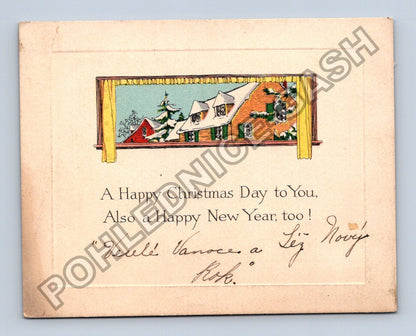 A Happy Christmas Day to You,
Also a Happy New Year, too!
"Veselé Vanoce a Těž Nový
Rok."
POHLEDNICE BASH